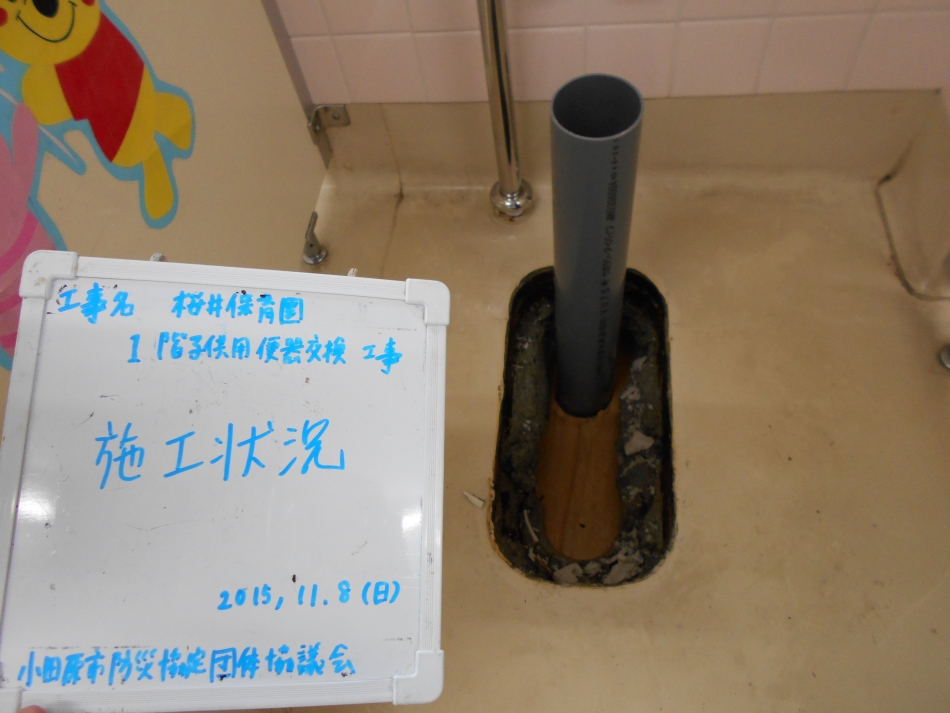 工事名 桜井保育園
1階子供用便器交換工事
施工状況
2015,11.8(日)
小田原市防災協定団体協議会